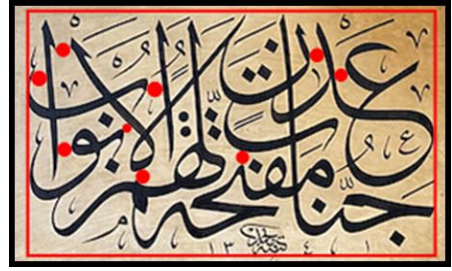 جنات عدن مفتحة لهم الابواب
١٣٤١